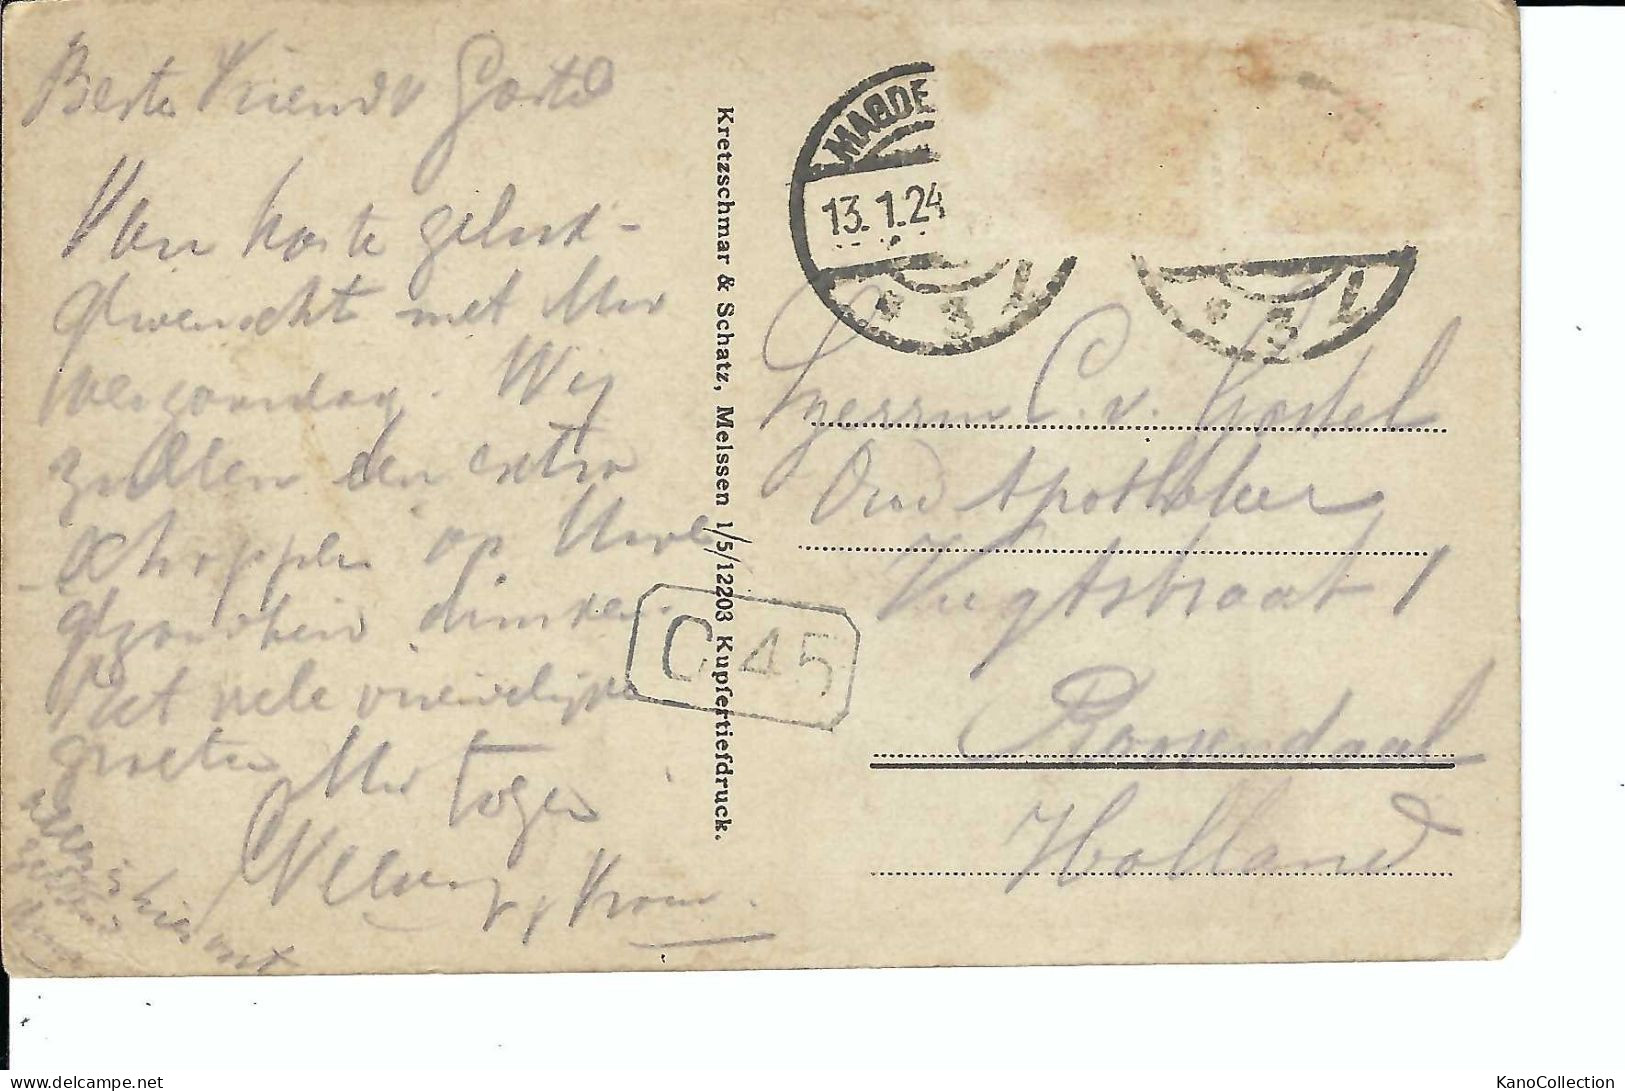 Beste Vriend v Gastel
Van harte geluk-
gewenscht met Uw
verjaardag. Wij
zullen een extra
schoppen op Uwe
gezondheid drinken.
Met vele vriendelijke
groeten Uw
Kroon.
is hier
Kretzschmar & Schatz, Meissen 1/5/12203 Kupfertiefdruck.
MAGDE
13.1.24
* 3 L
* 3 L
C 45
Herrn C. v. Gastel
Oud Apotheker
Vugtstraat 1
Roosendaal
Holland
KanoCollection